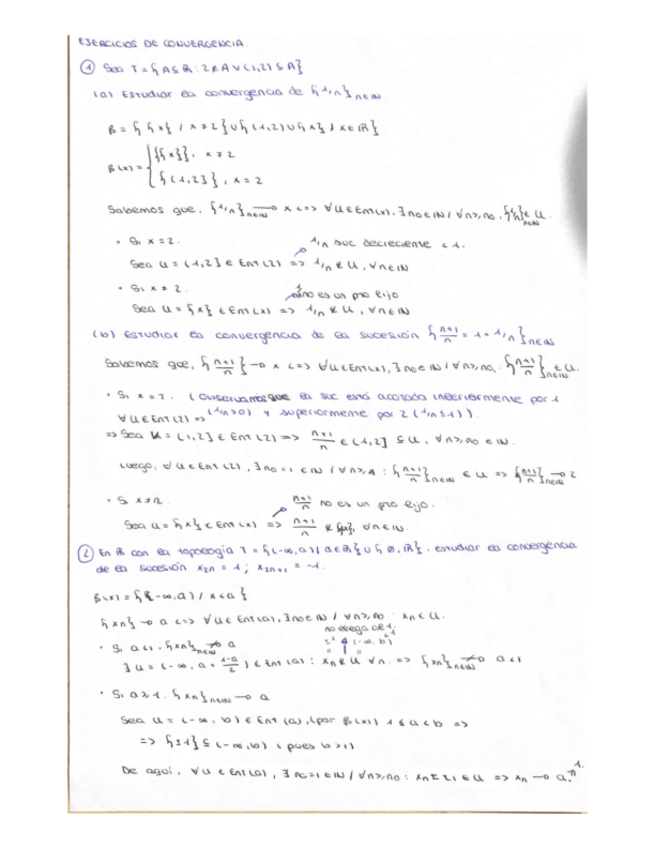 EJERCICIOS DE CONVERGENCIA.
① Sea T = { A ⊆ ℝ : 2 ∉ A ∨ (1,2) ⊆ A }
(a) Estudiar la convergencia de {1/n} n∈ℕ.
β = { {x} / x ≠ 2 } ∪ { (1,2) ∪ {x} / x ∈ ℝ }
β(x) = { {{x}}, x ≠ 2
{ (1,2] }, x = 2
Sabemos que, {1/n} n∈ℕ → x <=> ∀U ∈ Ent(x), ∃ n0 ∈ ℕ / ∀n ≥ n0, {1/n} n∈ℕ ∈ U.
• Si x = 2. 1/n suc decreciente < 1.
Sea U = (1,2] ∈ Ent(2) => 1/n ∉ U, ∀n ∈ ℕ
• Si x ≠ 2. 1/n no es un pto fijo
Sea U = {x} ∈ Ent(x) => 1/n ∉ U, ∀n ∈ ℕ
(b) Estudiar la convergencia de la sucesión { n+1/n = 1 + 1/n } n∈ℕ
Sabemos que, { n+1/n } → x <=> ∀U ∈ Ent(x), ∃ n0 ∈ ℕ / ∀n ≥ n0, { n+1/n } n∈ℕ ∈ U.
• Si x = 2. (Observamos que la suc está acotada inferiormente por 1
∀U ∈ Ent(2) => (1/n > 0) y superiormente por 2 (1/n ≤ 1)).
=> Sea U = (1,2] ∈ Ent(2) => n+1/n ∈ (1,2] ⊆ U, ∀n ≥ n0 ∈ ℕ.
Luego, ∀U ∈ Ent(2), ∃ n0 = 1 ∈ ℕ / ∀n ≥ 1 : { n+1/n } n∈ℕ ∈ U => { n+1/n } n∈ℕ → 2
• Si x ≠ 2. n+1/n no es un pto fijo.
Sea U = {x} ∈ Ent(x) => n+1/n ∉ {x}, ∀n ∈ ℕ.
② En ℝ con la topología T = { (-∞, a) / a ∈ ℝ } ∪ { ∅, ℝ }, estudiar la convergencia
de la sucesión x2n = 1 ; x2n+1 = -1.
β(x) = { (-∞, a) / x < a }
{xn} → a <=> ∀U ∈ Ent(a), ∃ n0 ∈ ℕ / ∀n ≥ n0 : xn ∈ U.
no llega al 1.
• Si a < 1. {xn} n∈ℕ ↛ a
∃ U = (-∞, a + 1-a/2) ∈ Ent(a) : xn ∉ U ∀n. => {xn} n∈ℕ ↛ a < 1
• Si a ≥ 1. {xn} n∈ℕ → a
Sea U = (-∞, b) ∈ Ent(a), (por β(x)) 1 ≤ a < b =>
=> {±1} ⊆ (-∞, b) (pues b > 1)
De aquí, ∀U ∈ Ent(a), ∃ n0 = 1 ∈ ℕ / ∀n ≥ n0 : xn = ±1 ∈ U => xn → a.